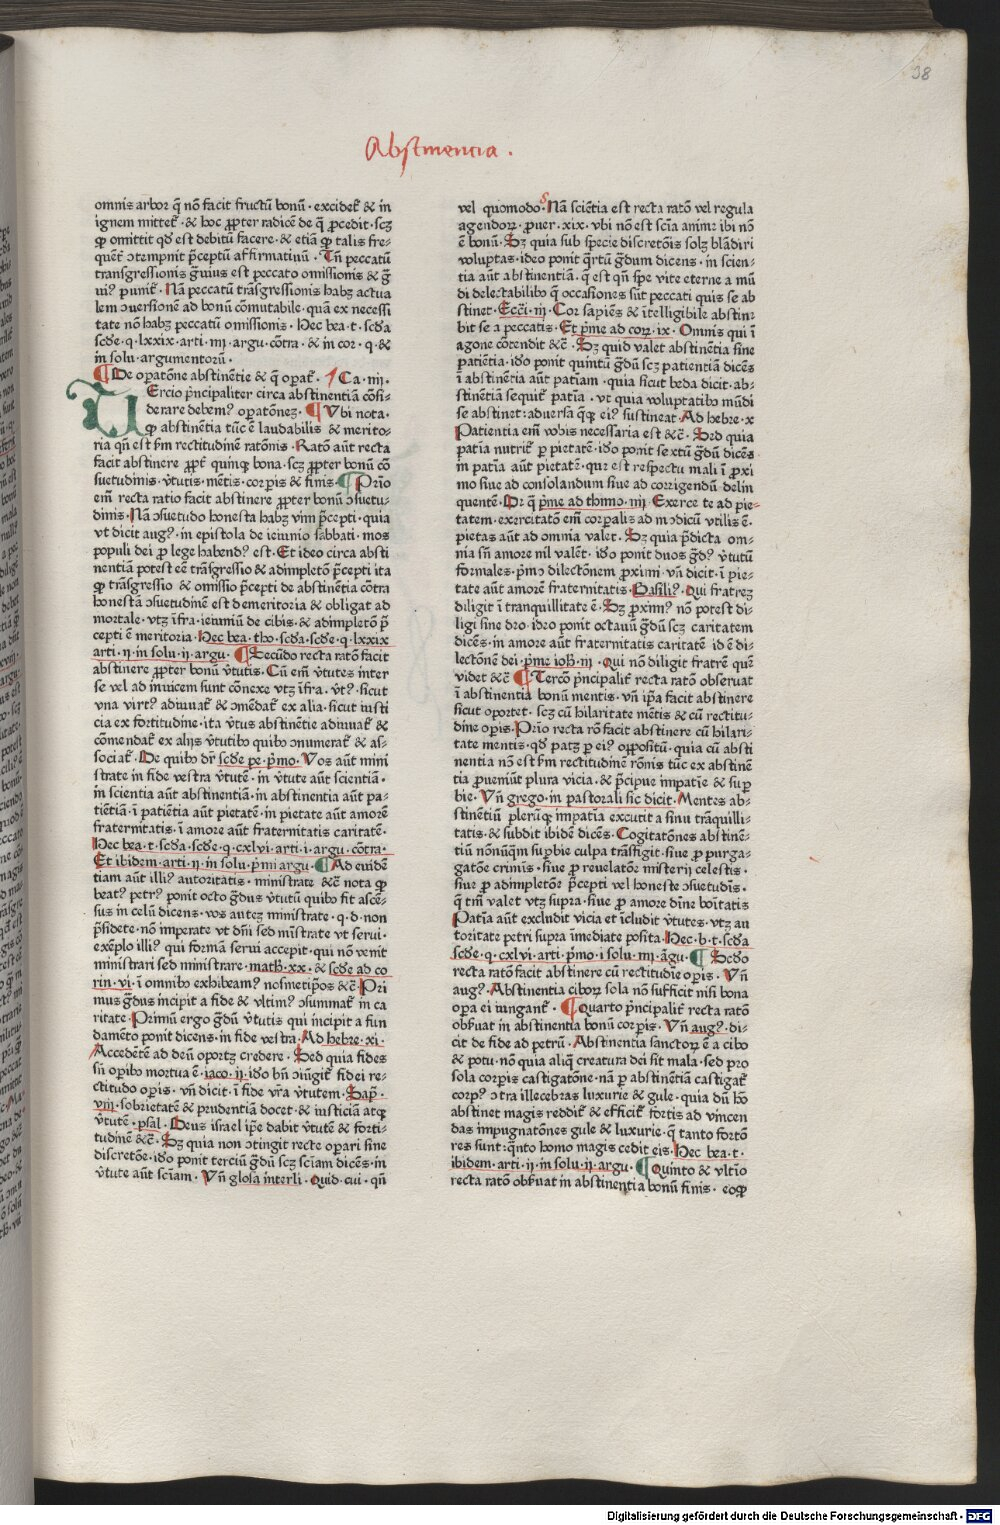 38
Abstinencia .
omnis arbor q̄ nō facit fructū bonū · excidet᷑ & in
ignem mittet᷑ · & hoc ꝓpter radicē de q̄ ꝓcedit · scꝫ
ꝙ omittit qd̄ est debitū facere · & etiā ꝙ talis fre⸗
quēt᷑ ↄtempnit p̄ceptū affirmatiuū · Tn̄ peccatū
transgressionis g̃uius est peccato omissionis & g̃
uiꝰ punit᷑ · Nā peccatū trāsgressionis habꝫ actua
lem ↄuersionē ad bonū cōmutabile · quā ex necessi
tate nō habꝫ peccatū omissionis · Hec bea · t · scd̄a
scd̄e · q · lxxix · arti · iiij · argu · cōtra · & in cor · q · &
in solu · argumentorū ·
¶ De oꝑatōne abstinētie & q̄ oꝑat᷑ · Ca · iiij ·
Tercio p̄ncipaliter circa abstinentiā cōsi⸗
derare debemꝰ oꝑatōneꝫ · ¶ Vbi nota ·
ꝙ abstinētia tūc ē laudabilis & merito⸗
ria qn̄ est ẜm rectitudinē ratōnis · Ratō aūt recta
facit abstinere ꝓpt᷑ quinqꝫ bona · scꝫ ꝓpter bonū cō
suetudinis · v̄tutis · mētis · corꝑis & finis · ¶ Prīo
em̄ recta ratio facit abstinere ꝓpter bonū ↄsuetu⸗
dinis · Nā ↄsuetudo honesta habꝫ vim p̄cepti · quia
vt dicit augꝰ · in epistola de ieiunio sabbati · mos
populi dei ꝓ lege habendꝰ est · Et ideo circa absti
nentiā potest eē trāsgressio & adimpletō p̄cepti ita
ꝙ trāsgressio & omissio p̄cepti de abstinētia cōtra
honestā ↄsuetudinē est demeritoria & obligat ad
mortale · vtꝫ īfra · ieiuniū de cibis · & adimpletō p̄
cepti ē meritoria · Hec bea · tho · scd̄a · scd̄e · q · lxxix
arti · ij · in solu · ij · argu · ¶ Secūdo recta ratō facit
abstinere ꝓpter bonū v̄tutis · Cū em̄ v̄tutes inter
se vel ad inuicem sunt cōnexe vtꝫ īfra · v̄tꝰ · sicut
vna virtꝰ adiuuat᷑ & ↄmēdat᷑ ex alia · sicut iusti
cia ex fortitudine · ita v̄tus abstinētie adiuuat᷑ &
cōmendat᷑ ex alijs v̄tutibꝰ quibꝰ ↄnumerat᷑ & as⸗
sociat᷑ · De quibꝰ dr̄ scd̄e pe · p̄mo · Vos aūt mini
strate in fide vestra v̄tutē · in v̄tute aūt scientiā ·
in scientia aūt abstinentiā · in abstinentia aūt pa⸗
tiētiā · ī patiētia aūt pietatē · in pietate aūt amorē
fraternitatis · ī amore aūt fraternitatis caritatē ·
Hec bea · t · scd̄a · scd̄e · q · cxlvi · arti · i · argu · cōtra ·
Et ibidem · arti · ij · in solu · p̄mi argu · ¶ Ad euidē
tiam aūt illiꝰ autoritatis · ministrate &c̄ nota ꝙ
beatꝰ petrꝰ ponit octo g̃dus v̄tutū quibꝰ fit ascē⸗
sus in celū dicens · vos auteꝫ ministrate · q · d · non
p̄sidete · nō imperate vt dn̄i sed mīstrate vt serui ·
exēplo illiꝰ qui formā serui accepit · qui nō venit
ministrari sed ministrare · math̄ · xx · & scd̄e ad co
rin · vi · ī omnibꝰ exhibeamꝰ nosmetip̄os &c̄ · Pri
mus g̃dus incipit a fide & vltimꝰ ↄsummat᷑ in ca
ritate · Primū ergo g̃dū v̄tutis qui incipit a fun
damēto ponit dicens · in fide vestra · Ad hebre · xi ·
Accedētē ad deū oportꝫ credere · Sed quia fides
sn̄ oꝑibꝰ mortua ē · iaco · ij · ido bn̄ ↄiūgit᷑ fidei re⸗
ctitudo oꝑis · vn̄ dicit · ī fide vr̄a v̄tutem · Sap̄ ·
viij · sobrietatē & prudentiā docet · & iusticiā atqꝫ
v̄tutē · psal̄ · Deus israel ip̄e dabit v̄tutē & forti⸗
tudinē &c̄ · Sꝫ quia non ↄtingit recte oꝑari sine
discretōe · ido ponit terciū g̃dū scꝫ sciam dicēs · in
v̄tute aūt sciam · Vn̄ glosa interli · Quid · cui · qn̄
vel quomodo · Nā sciētia est recta ratō vel regula
agendoꝝ · ꝓuer · xix · vbi nō est scīa anime ibi nō
ē bonū · Sꝫ quia sub specie discretōnis solꝫ blādiri
voluptas · ideo ponit q̄rtū g̃dum dicens · in scien⸗
tia aūt abstinentiā · q̄ est qn̄ spe vite eterne a mū
di delectabilibꝰ q̄ occasiones sūt peccati quis se ab
stinet · Ecc̄i · iij · Cor sapiēs & ītelligibile abstine
bit se a peccatis · Et p̄me ad coꝝ · ix · Omnis qui ī
agone cōtendit &c̄ · Sꝫ quid valet abstinētia sine
patiētia · ido ponit quintū g̃dū scꝫ patientiā dicēs
ī abstinētia aūt patiam · quia sicut beda dicit · ab⸗
stinētiā sequit᷑ patia · vt quia voluptatibꝰ mūdi
se abstinet · aduersa q̄qꝫ eiꝰ sustineat · Ad hebre · x
Patientia em̄ vobis necessaria est &c̄ · Sed quia
patia nutrit᷑ ꝑ pietatē · ido ponit sextū g̃dū dicēs
in patia aūt pietatē · que est respectu mali ī ꝓxi
mo siue ad consolandum siue ad corrigendū delin
quentē · De q̄ p̄me ad thimo · iiij · Exerce te ad pie⸗
tatem · exercitatō em̄ corꝑalis ad modicū vtilis ē ·
pietas aūt ad omnia valet · Sꝫ quia p̄dicta om⸗
nia sn̄ amore nil valēt · ido ponit duos g̃dꝰ v̄tutū
formales · p̄mo dilectōnem ꝓximi · vn̄ dicit · ī pie⸗
tate aūt amorē fraternitatis · Basiliꝰ · Qui fratreꝫ
diligit ī tranquillitate ē · Sꝫ ꝓximꝰ nō potest di⸗
ligi sine deo · ideo ponit octauū g̃dū scꝫ caritatem
dicēs · in amore aūt fraternitatis caritatē id ē di⸗
lectōnē dei · p̄me ioh̄ · iij · Qui nō diligit fratrē quē
videt &c̄ ¶ Tercō p̄ncipalit᷑ recta ratō obseruat
ī abstinentia bonū mentis · vn̄ ip̄a facit abstinere
sicut oportet · scꝫ cū hilaritate mētis & cū rectitu⸗
dīne oꝑis · Prīo recta rō facit abstinere cū hilari⸗
tate mentis · qd̄ patꝫ ꝑ eiꝰ oppositū · quia cū absti
nentia nō est ẜm rectitudinē rōnis tūc ex abstinē
tia ꝓueniūt plura vicia · & p̄cipue impatīe & suꝑ
bie · Vn̄ grego · in pastorali sic dicit · Mentes ab⸗
stinētiū plerūqꝫ impatīa excutit a sinu trāquilli⸗
tatis · & subdit ibidē dicēs · Cogitatōnes abstinē⸗
tiū nonūqm̄ suꝑbie culpa trāsfigit · siue ꝓ purga⸗
gatōe criminis · siue ꝓ reuelatōe misterij celestis ·
siue ꝓ adimpletōe p̄cepti vel honeste ↄsuetudīs ·
q̄ tm̄ valet vtꝫ supra · siue ꝓ amore diuine boītatis
Patīa aūt excludit vicia et īcludit v̄tutes · vtꝫ au
toritate petri supra īmediate posita · Hec · b · t · scd̄a
scd̄e · q · cxlvi · arti · p̄mo · ī solu · iiij · argu · ¶ Scd̄o
recta ratō facit abstinere cū rectitudie oꝑis · Vn̄
augꝰ · Abstinentia ciboꝝ sola nō sufficit nisi bona
oꝑa ei iungant᷑ · ¶ Quarto p̄ncipalit᷑ recta ratō
obẜuat in abstinentia bonū corꝑis · Vn̄ augꝰ · di⸗
cit de fide ad petrū · Abstinentia sanctoꝝ ē a cibo
& potu · nō quia aliq̄ creatura dei sit mala · sed pro
sola corꝑis castigatōne · nā ꝑ abstinētiā castigat᷑
corpꝰ ↄtra illecebras luxurie & gule · quia dū hō
abstinet magis reddit᷑ & efficit᷑ fortis ad vincen
das impugnatōnes gule & luxurie · q̄ tanto fortō
res sunt · q̄nto homo magis cedit eis · Hec bea · t ·
ibidem · arti · ij · in solu · ij · argu · ¶ Quinto & vltīo
recta ratō obẜuat in abstinentia bonū finis · eoꝙ
Digitalisierung gefördert durch die Deutsche Forschungsgemeinschaft - DFG